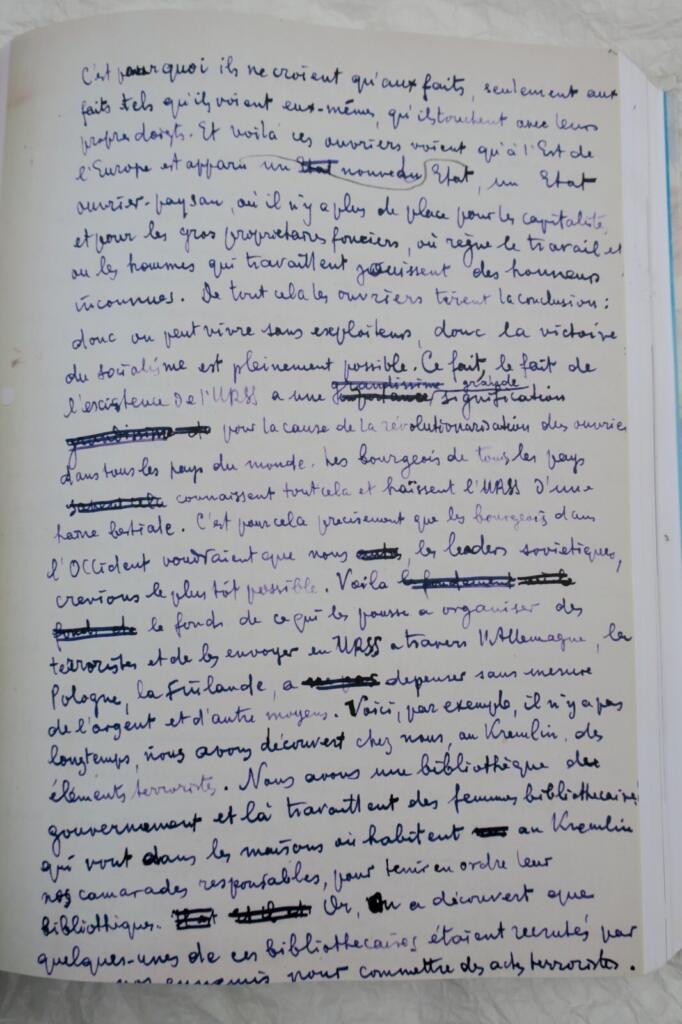 C'est pourquoi ils ne croient qu'aux faits, seulement aux
faits tels qu'ils voient eux-mêmes, qu'ils touchent avec leurs
propres doigts. Et voilà ces ouvriers voient qu'à l'Est de
l'Europe est apparu un Etat nouveau Etat, un Etat
ouvrier-paysan, où il n'y a plus de place pour les capitalistes
et pour les gros propriétaires fonciers, où règne le travail et
ou les hommes qui travaillent jouissent des honneurs
inconnues. De tout cela les ouvriers tirent la conclusion :
donc on peut vivre sans exploiteurs, donc la victoire
du socialisme est pleinement possible. Ce fait, le fait de
grandissime grande
l'existence de l'URSS a une importance signification
grandissime de pour la cause de la révolutionarisation des ouvriers
dans tous les pays du monde. Les bourgeois de tous les pays
connaissent tout cela et haïssent l'URSS d'une
haine bestiale. C'est pour cela precisement que les bourgeois dans
l'Occident voudraient que nous, les leaders sovietiques,
crevions le plus tôt possible. Voila
le fonds de ce qui les pousse a organiser des
terroristes et de les envoyer en URSS a travers l'Allemagne, la
Pologne, la Finlande, a depenser sans mesure
de l'argent et d'autre moyens. Voici, par exemple, il n'y a pas
longtemps, nous avons découvert chez nous, au Kremlin, des
éléments terroristes. Nous avons une bibliothèque de
gouvernement et là travaillent des femmes bibliothecaires
qui vont dans les maisons où habitent au Kremlin
nos camarades responsables, pour tenir en ordre leur
bibliothiques. Or, on a découvert que
quelques-unes de ces bibliothecaires étaient recrutés par
nos ennemis pour commettre des actes terroristes.